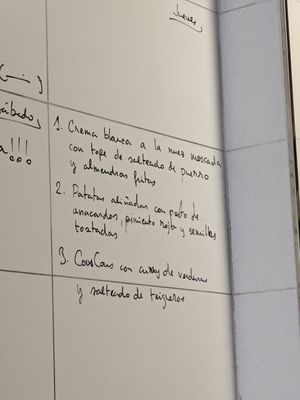 Jueves
sábado,
!!!
1. Crema blanca a la nuez moscada
con tope de salteado de puerro
y almendras fritas
2. Patatas aliñadas con pesto de
anacardos, pimiento rojo y semillas
tostadas
3. CousCous con curry de verduras
y salteado de trigueros